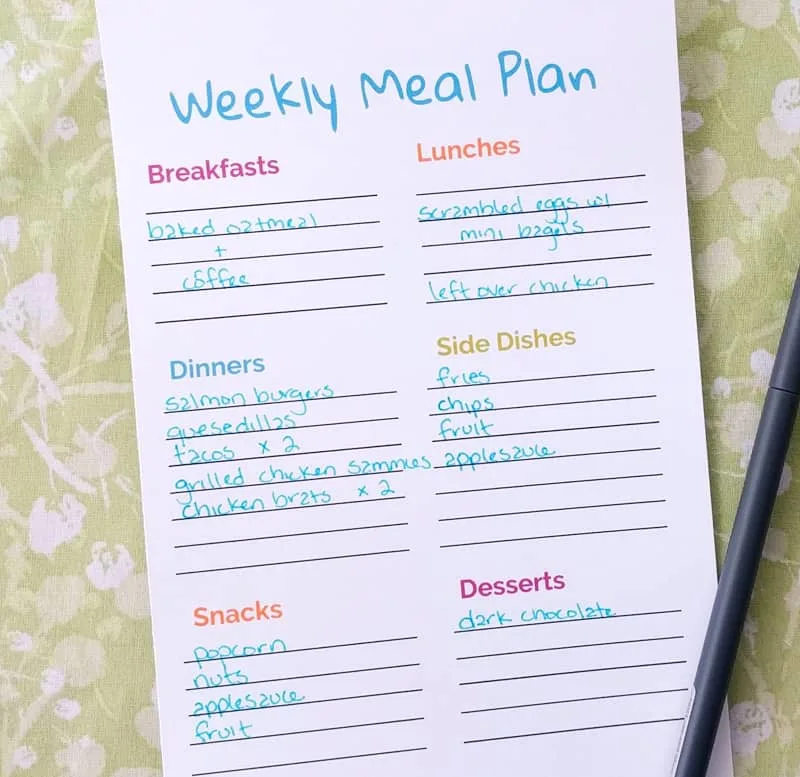 Weekly Meal Plan
Breakfasts
baked oatmeal
+
coffee
Lunches
scrambled eggs w/
mini bagels
left over chicken
Dinners
salmon burgers
quesedillas
tacos x 2
grilled chicken sammies
chicken brats x 2
Side Dishes
fries
chips
fruit
applesauce
Snacks
popcorn
nuts
applesauce
fruit
Desserts
dark chocolate